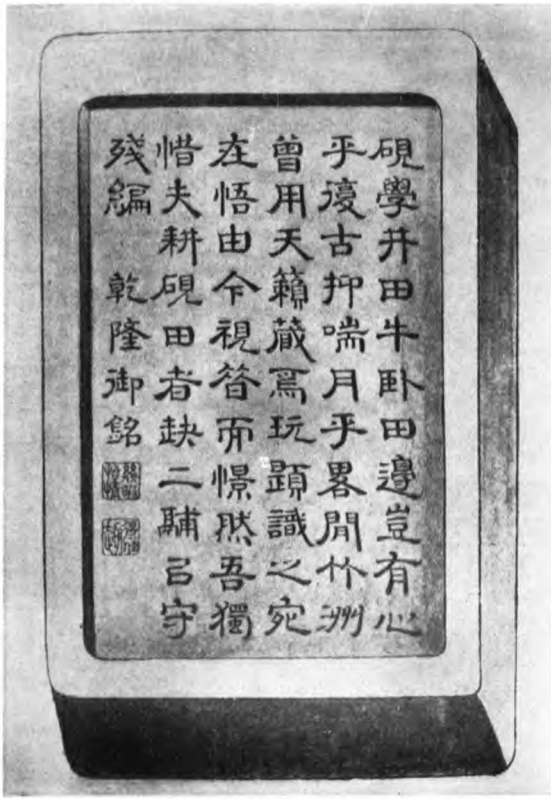 硯學井田牛卧田邊豈有心
乎復古抑喘月乎畧閒竹洲
曾用天籟藏焉玩題識之宛
在悟由今視昔而憬然吾獨
惜夫耕硯田者缺二鬴㠯守
殘編 乾隆御銘